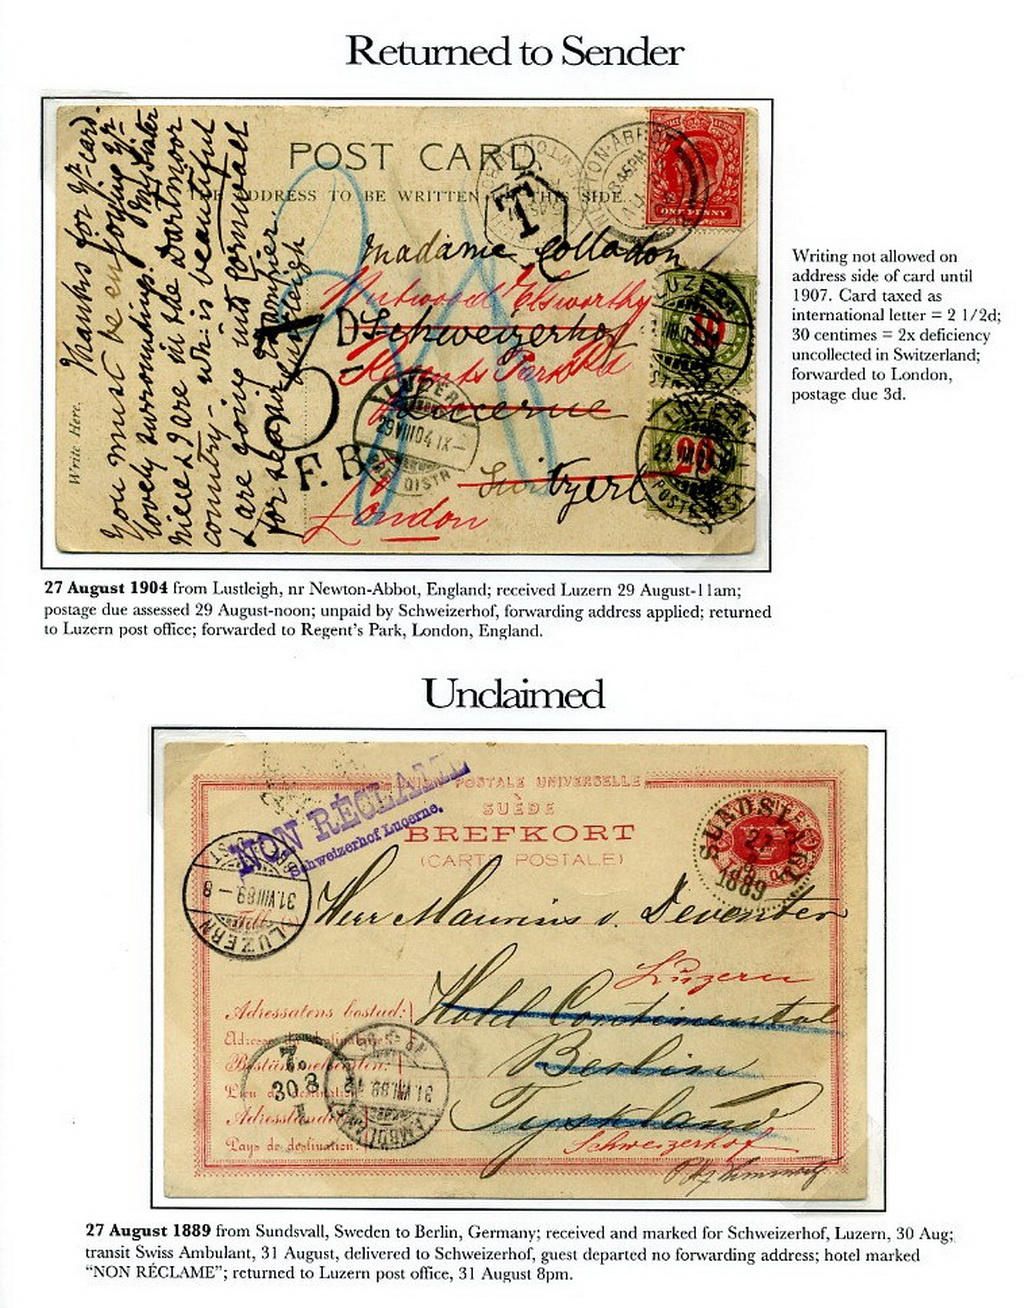 Returned to Sender
POST CARD.
THE ADDRESS TO BE WRITTEN ON THIS SIDE.
T
ONE PENNY
Write Here.
Thanks for yr card.
You must be enjoying yr
lovely surroundings. My sister
niece & I are in the Dartmoor
country - wh: is beautiful
& are going into Cornwall
for scenery
Lustleigh
Madame Colladon
Nutwood Elsworthy
Schweizerhof
Regents Park Rd
Lucerne
Switzerl
London
F. B.
LUZERN
29 VIII 04 IX
LUZERN
20
LUZERN
Writing not allowed on
address side of card until
1907. Card taxed as
international letter = 2 1/2d;
30 centimes = 2x deficiency
uncollected in Switzerland;
forwarded to London,
postage due 3d.
27 August 1904 from Lustleigh, nr Newton-Abbot, England; received Luzern 29 August-11am;
postage due assessed 29 August-noon; unpaid by Schweizerhof, forwarding address applied; returned
to Luzern post office; forwarded to Regent's Park, London, England.
Unclaimed
POSTALE UNIVERSELLE
SUÈDE
BREFKORT
(CARTE POSTALE)
NON RÉCLAMÉ
Schweizerhof Lucerne.
SUNDSVALL
27
8
1889
31.VIII.89-8
LUZERN
Herr Maurius v. Deventer
Luzern
Adressatens bostad:
Hotel Continental
Berlin
Lieu de destination
Tyskland
Pays de destination:
Schweizerhof
7.
30 8
1
31.VIII.89
27 August 1889 from Sundsvall, Sweden to Berlin, Germany; received and marked for Schweizerhof, Luzern, 30 Aug;
transit Swiss Ambulant, 31 August, delivered to Schweizerhof, guest departed no forwarding address; hotel marked
"NON RÉCLAME"; returned to Luzern post office, 31 August 8pm.